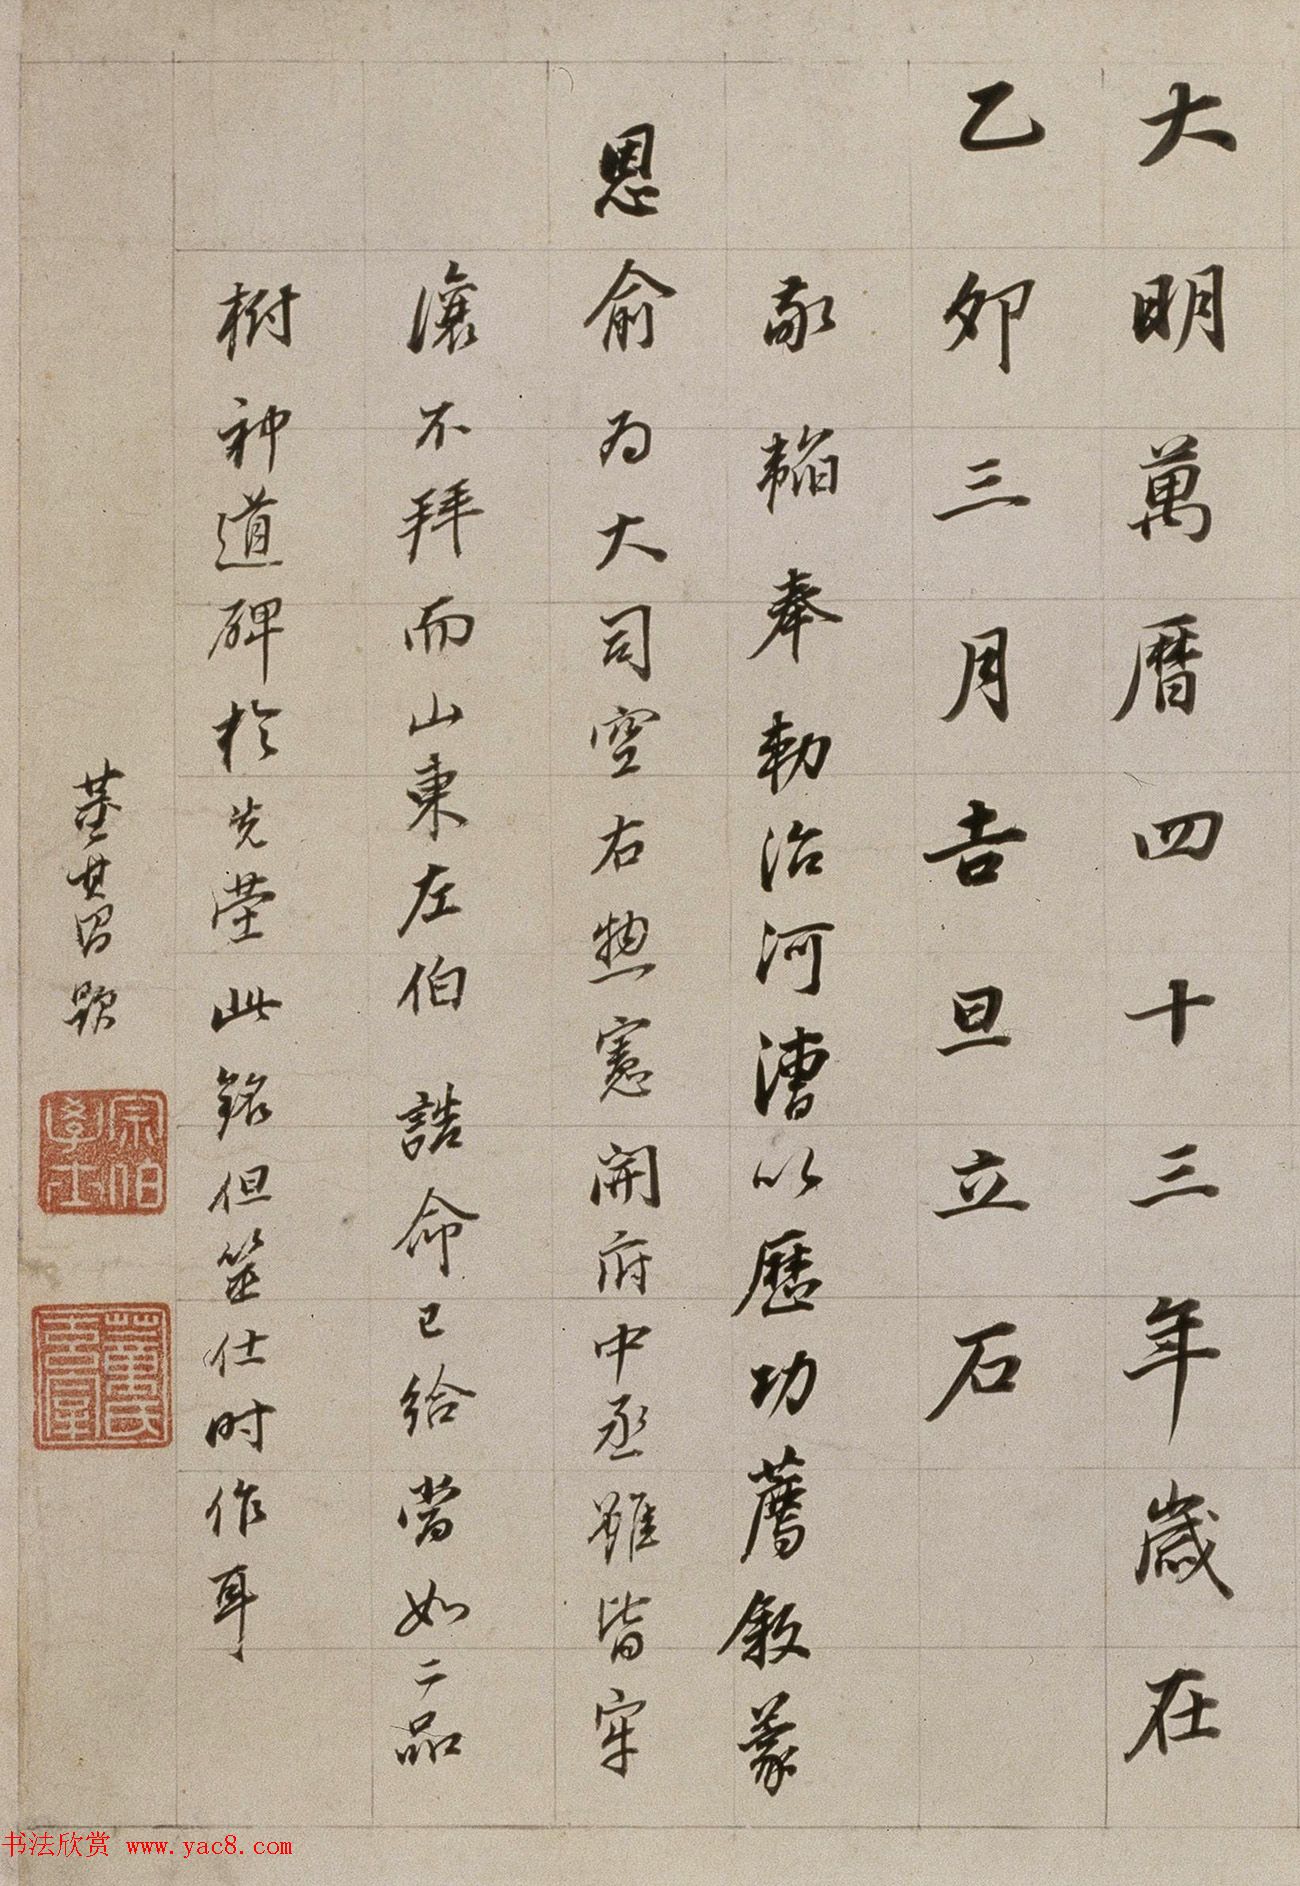 大明萬曆四十三年歲在
乙卯三月吉旦立石
敬韜奉勅治河漕以歷功薦敘蒙
恩俞为大司空右揔憲開府中丞雖皆牢
瀼不拜而山東左伯誥命已給當如二品
樹神道碑於先塋此銘但筮仕时作耳
董其昌題
宗伯學士
書法欣赏 www.yac8.com